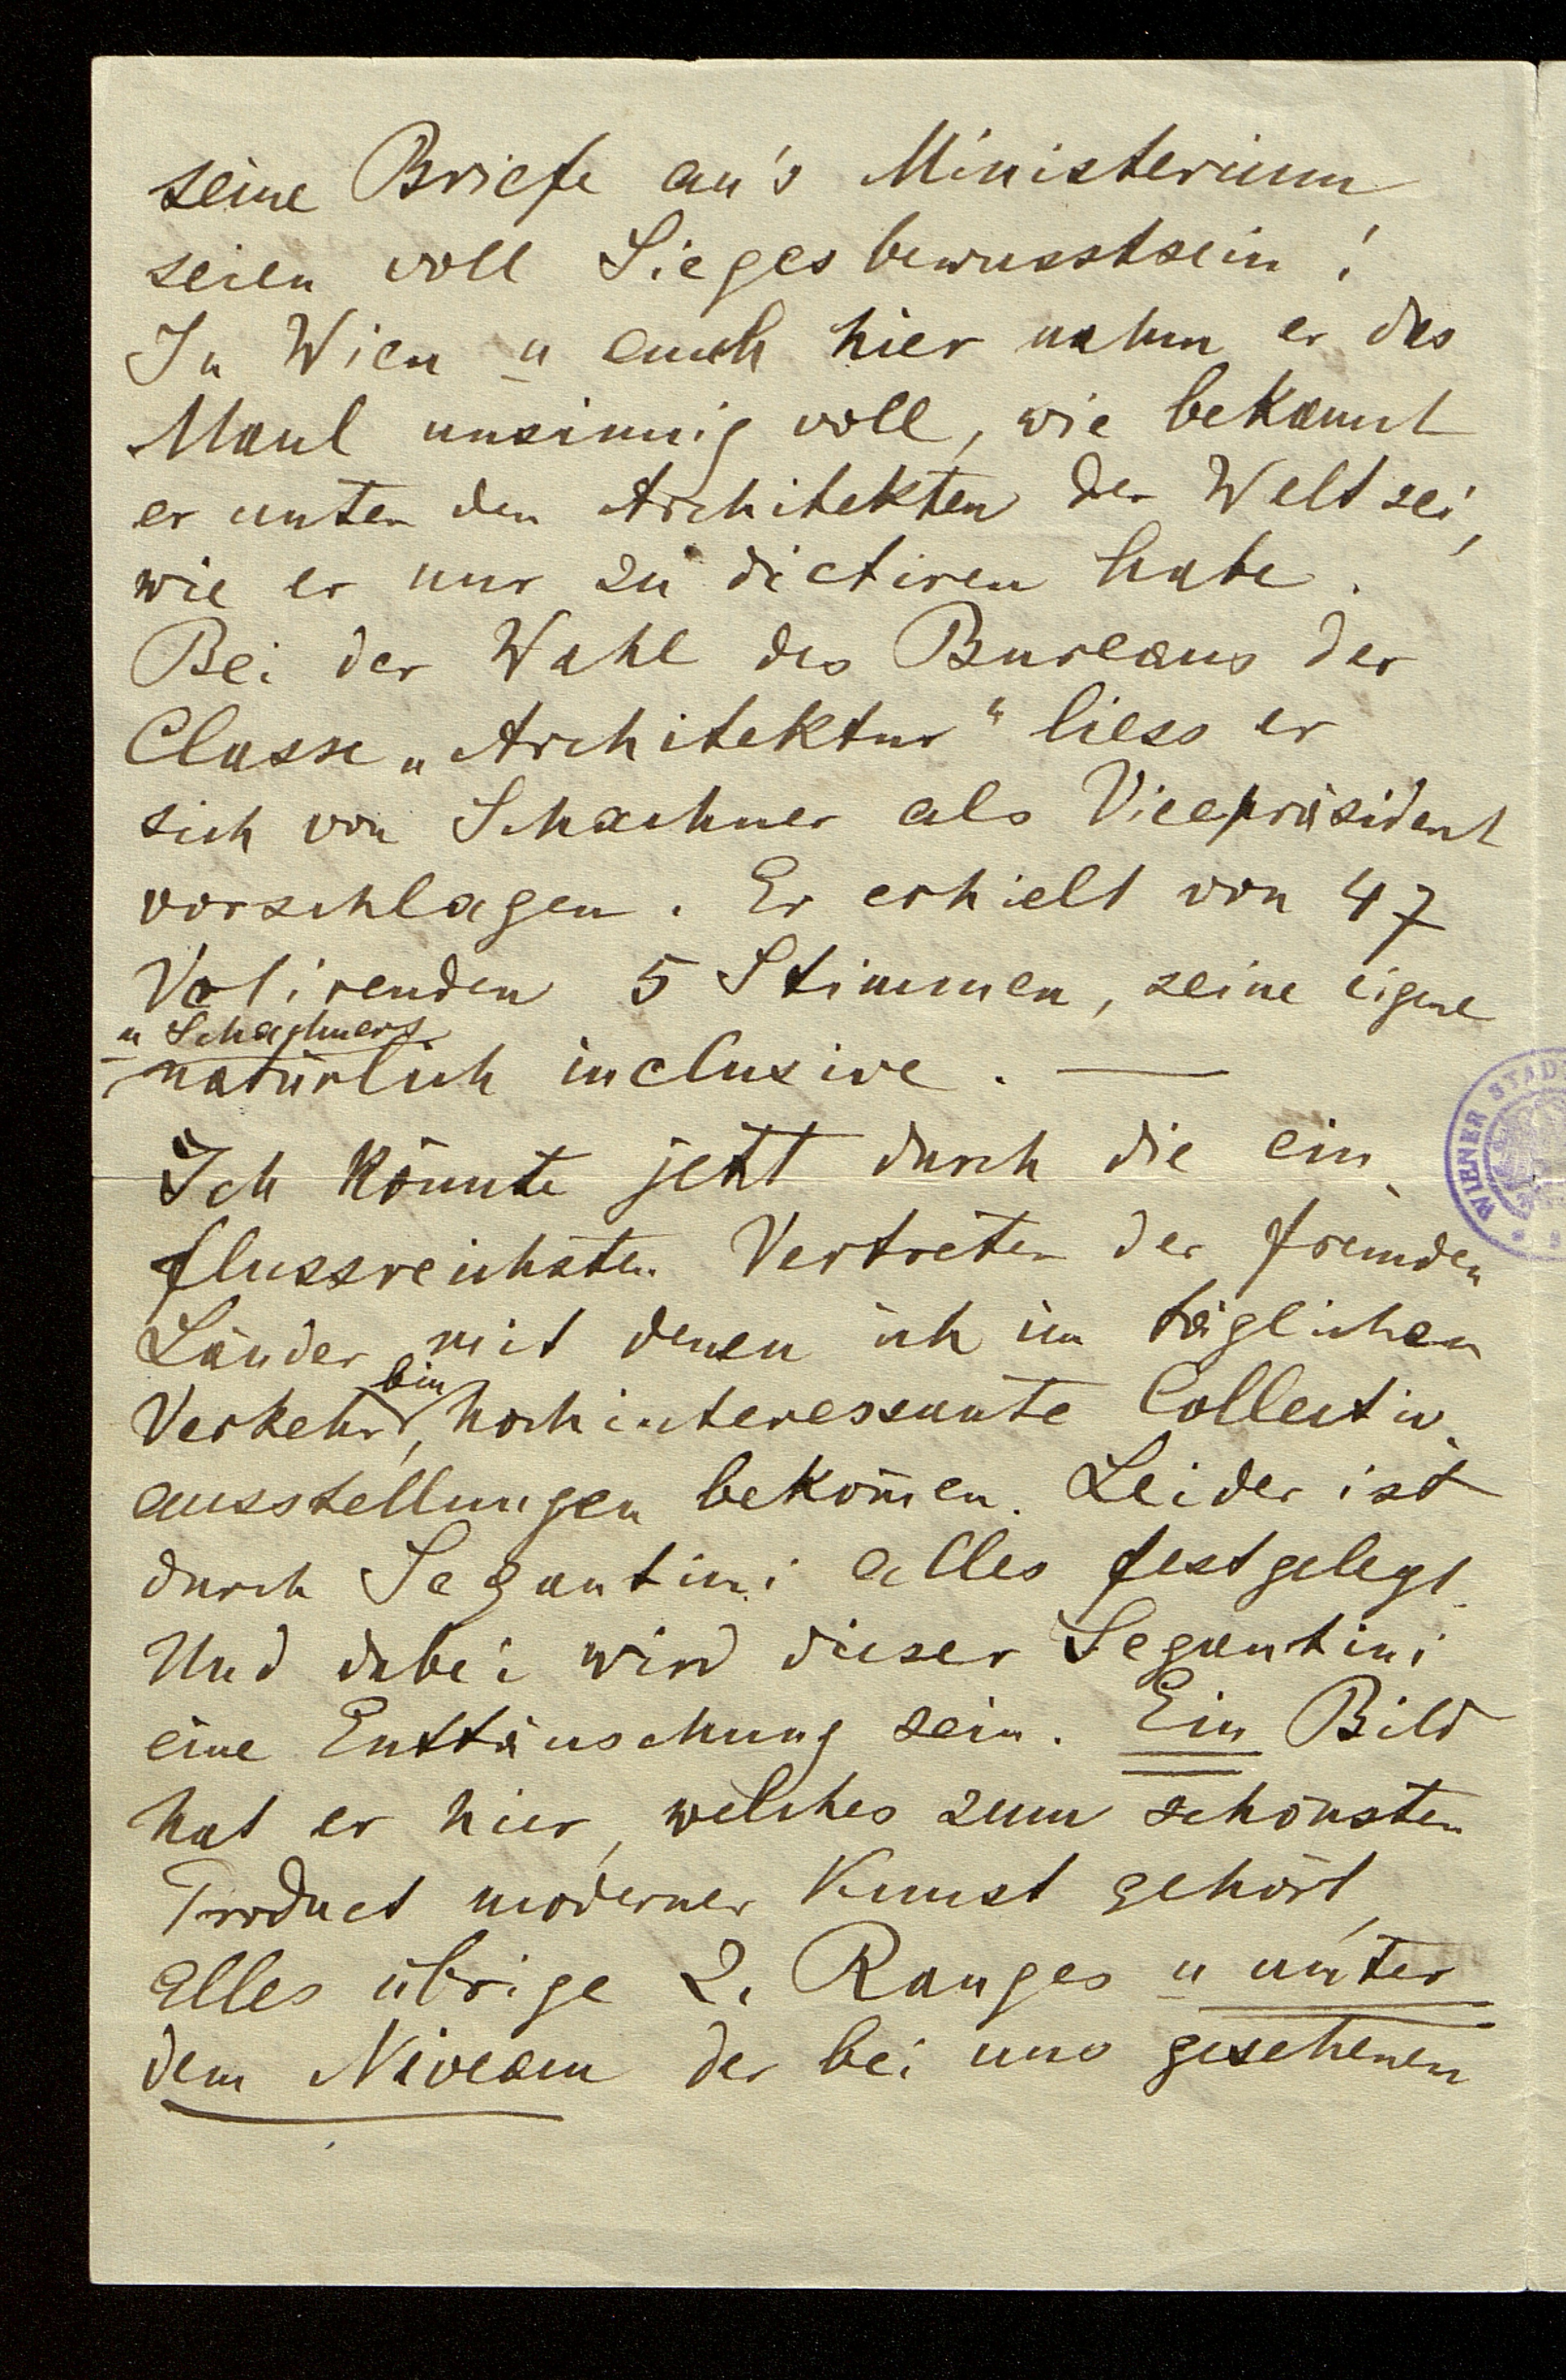 seine Briefe an's Ministerium
seien voll Siegesbewusstsein!
In Wien u auch hier nahm er das
Maul unsinnig voll, wie bekannt
er unter den Architekten der Welt sei,
wie er nur zu dictiren habe.
Bei der Wahl des Bureaus der
Classe „Architektur“ liess er
sich von Schachner als Vicepräsident
vorschlagen. Er erhielt von 47
Votirenden 5 Stimmen, seine eigene
u Schachners
natürlich inclusive. —
Ich könnte jetzt durch die ein-
flussreichsten Vertreter der fremden
Länder, mit denen ich im täglichen
bin
Verkehr, hochinteressante Collectiv-
ausstellungen bekom̄en. Leider ist
durch Segantini alles festgelegt.
Und dabei wird dieser Segantini
eine Enttäuschung sein. Ein Bild
hat er hier, welches zum schönsten
Product moderner Kunst gehört,
alles übrige 2. Ranges u unter
dem Niveau der bei uns gesehenen
WIENER STAD